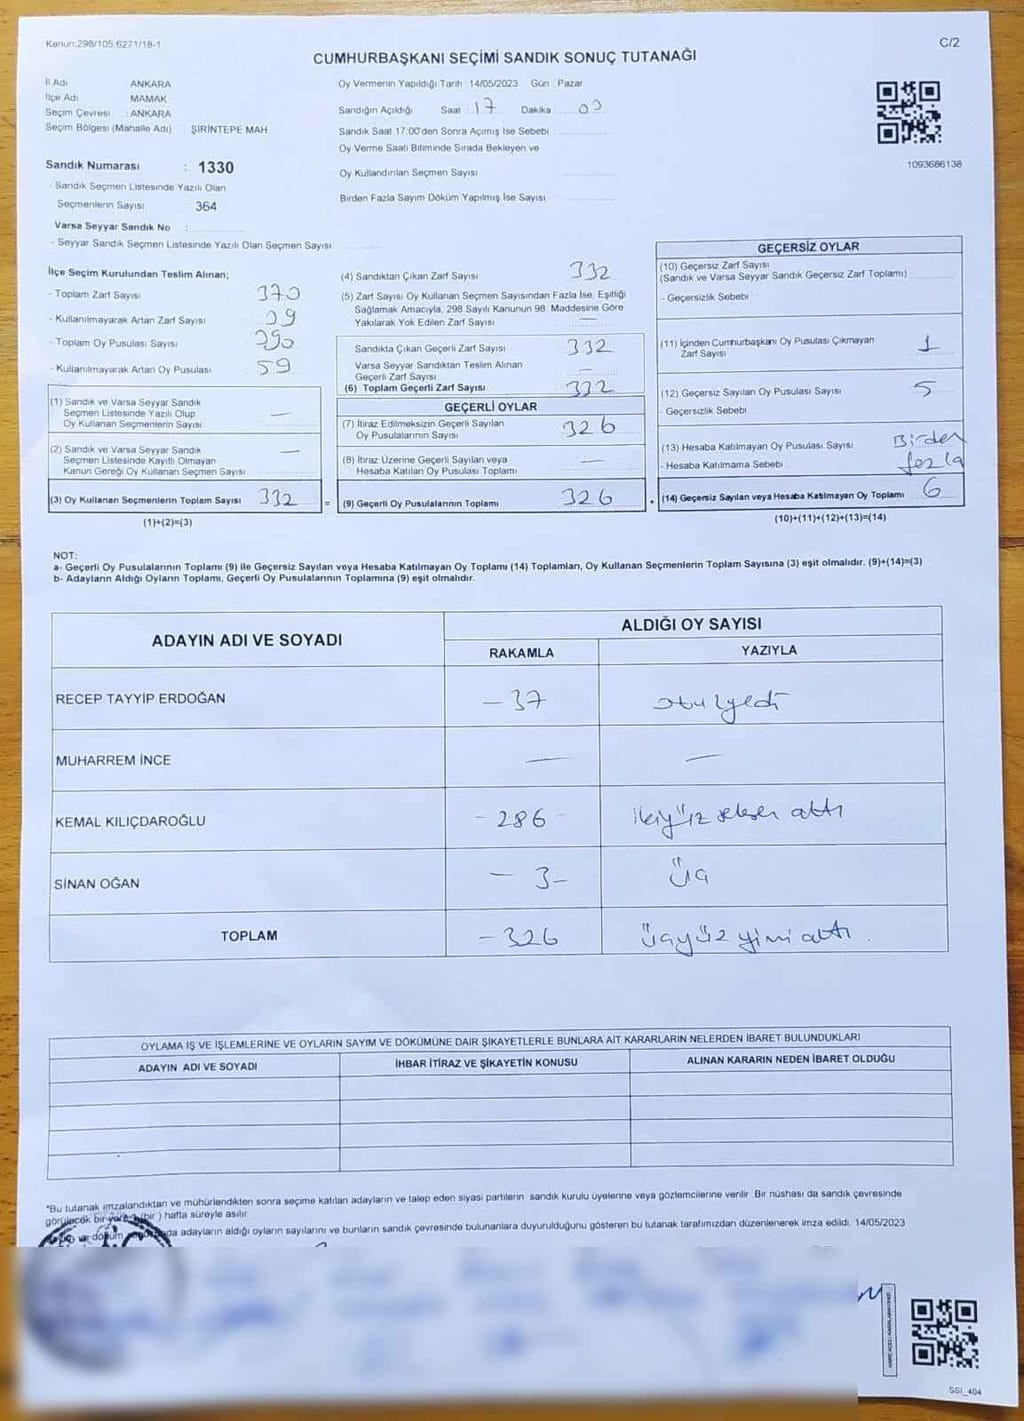 Kanun:298/105,6271/18-1
C/2
CUMHURBAŞKANI SEÇİMİ SANDIK SONUÇ TUTANAĞI
İl Adı ANKARA
İlçe Adı MAMAK
Seçim Çevresi : ANKARA
Seçim Bölgesi (Mahalle Adı) ŞİRİNTEPE MAH
Sandık Numarası : 1330
- Sandık Seçmen Listesinde Yazılı Olan
Seçmenlerin Sayısı : 364
Varsa Seyyar Sandık No :
- Seyyar Sandık Seçmen Listesinde Yazılı Olan Seçmen Sayısı:
Oy Vermenin Yapıldığı Tarih : 14/05/2023 Gün : Pazar
Sandığın Açıldığı Saat : 17 Dakika : 00
Sandık Saat 17:00'den Sonra Açımış İse Sebebi :
Oy Verme Saati Bitiminde Sırada Bekleyen ve
Oy Kullandırılan Seçmen Sayısı :
Birden Fazla Sayım Döküm Yapılmış İse Sayısı :
1093686138
İlçe Seçim Kurulundan Teslim Alınan;
- Toplam Zarf Sayısı : 370
- Kullanılmayarak Artan Zarf Sayısı :
- Toplam Oy Pusulası Sayısı :
- Kullanılmayarak Artan Oy Pusulası : 59
(1) Sandık ve Varsa Seyyar Sandık
Seçmen Listesinde Yazılı Olup
Oy Kullanan Seçmenlerin Sayısı : —
(2) Sandık ve Varsa Seyyar Sandık
Seçmen Listesinde Kayıtlı Olmayan
Kanun Gereği Oy Kullanan Seçmen Sayısı : —
(3) Oy Kullanan Seçmenlerin Toplam Sayısı : 332
(1)+(2)=(3)
(4) Sandıktan Çıkan Zarf Sayısı : 332
(5) Zarf Sayısı Oy Kullanan Seçmen Sayısından Fazla İse, Eşitliği
Sağlamak Amacıyla, 298 Sayılı Kanunun 98. Maddesine Göre
Yakılarak Yok Edilen Zarf Sayısı : —
Sandıkta Çıkan Geçerli Zarf Sayısı : 332
Varsa Seyyar Sandıktan Teslim Alınan
Geçerli Zarf Sayısı : —
(6) Toplam Geçerli Zarf Sayısı : 332
GEÇERLİ OYLAR
(7) İtiraz Edilmeksizin Geçerli Sayılan
Oy Pusulalarının Sayısı : 326
(8) İtiraz Üzerine Geçerli Sayılan veya
Hesaba Katılan Oy Pusulası Toplamı : —
= (9) Geçerli Oy Pusulalarının Toplamı : 326
GEÇERSİZ OYLAR
(10) Geçersiz Zarf Sayısı
(Sandık ve Varsa Seyyar Sandık Geçersiz Zarf Toplamı) :
- Geçersizlik Sebebi :
(11) İçinden Cumhurbaşkanı Oy Pusulası Çıkmayan
Zarf Sayısı : 1
(12) Geçersiz Sayılan Oy Pusulası Sayısı : 5
- Geçersizlik Sebebi :
(13) Hesaba Katılmayan Oy Pusulası Sayısı : Birden
- Hesaba Katılmama Sebebi : fazla
+ (14) Geçersiz Sayılan veya Hesaba Katılmayan Oy Toplamı : 6
(10)+(11)+(12)+(13)=(14)
NOT:
a- Geçerli Oy Pusulalarının Toplamı (9) ile Geçersiz Sayılan veya Hesaba Katılmayan Oy Toplamı (14) Toplamları, Oy Kullanan Seçmenlerin Toplam Sayısına (3) eşit olmalıdır. (9)+(14)=(3)
b- Adayların Aldığı Oyların Toplamı, Geçerli Oy Pusulalarının Toplamına (9) eşit olmalıdır.
ADAYIN ADI VE SOYADI
ALDIĞI OY SAYISI
RAKAMLA YAZIYLA
RECEP TAYYİP ERDOĞAN – 37 otuzyedi
MUHARREM İNCE — —
KEMAL KILIÇDAROĞLU - 286 - ikiyüz seksen altı
SİNAN OĞAN – 3 – üç
TOPLAM – 326 üçyüz yirmi altı.
OYLAMA İŞ VE İŞLEMLERİNE VE OYLARIN SAYIM VE DÖKÜMÜNE DAİR ŞİKAYETLERLE BUNLARA AİT KARARLARIN NELERDEN İBARET BULUNDUKLARI
ADAYIN ADI VE SOYADI İHBAR İTİRAZ VE ŞİKAYETİN KONUSU ALINAN KARARIN NEDEN İBARET OLDUĞU
*Bu tutanak imzalandıktan ve mühürlendikten sonra seçime katılan adayların ve talep eden siyasi partilerin sandık kurulu üyelerine veya gözlemcilerine verilir. Bir nüshası da sandık çevresinde
görülecek bir yere 1 (bir ) hafta süreyle asılır.
adayların aldığı oyların sayılarını ve bunların sandık çevresinde bulunanlara duyurulduğunu gösteren bu tutanak tarafımızdan düzenlenerek imza edildi. 14/05/2023
SSI_404